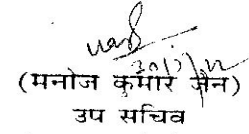 (मनोज कुमार जैन)
उप सचिव